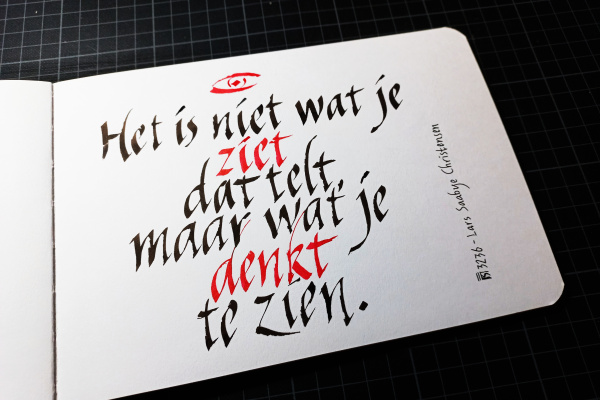 Het is niet wat je
ziet
dat telt,
maar wat je
denkt
te zien.
3236 - Lars Saabye Christensen